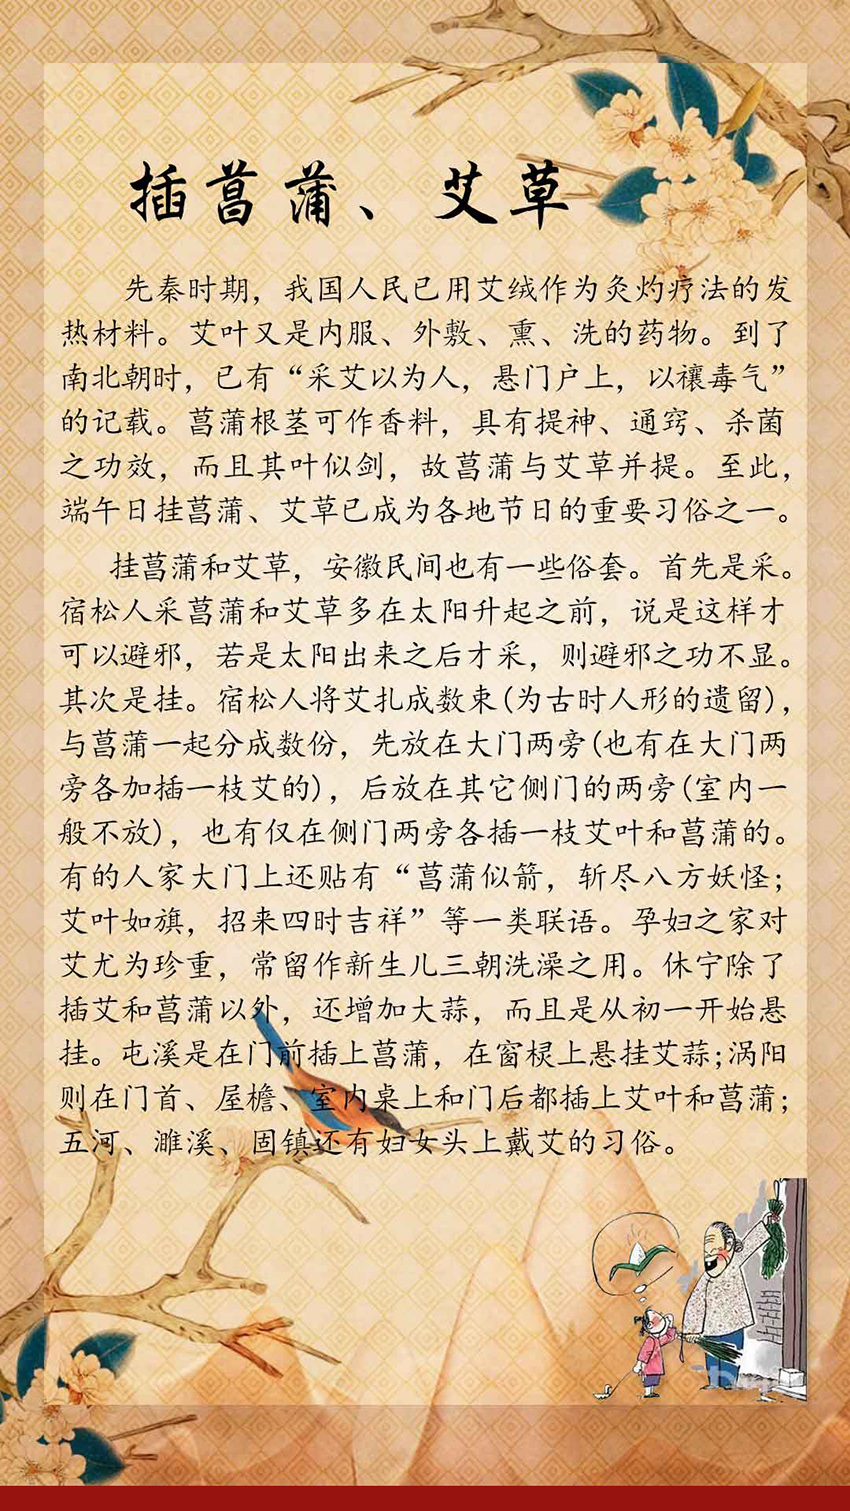 插菖蒲、艾草
先秦时期，我国人民已用艾绒作为灸灼疗法的发
热材料。艾叶又是内服、外敷、熏、洗的药物。到了
南北朝时，已有“采艾以为人，悬门户上，以禳毒气”
的记载。菖蒲根茎可作香料，具有提神、通窍、杀菌
之功效，而且其叶似剑，故菖蒲与艾草并提。至此，
端午日挂菖蒲、艾草已成为各地节日的重要习俗之一。
挂菖蒲和艾草，安徽民间也有一些俗套。首先是采。
宿松人采菖蒲和艾草多在太阳升起之前，说是这样才
可以避邪，若是太阳出来之后才采，则避邪之功不显。
其次是挂。宿松人将艾扎成数束(为古时人形的遗留)，
与菖蒲一起分成数份，先放在大门两旁(也有在大门两
旁各加插一枝艾的)，后放在其它侧门的两旁(室内一
般不放)，也有仅在侧门两旁各插一枝艾叶和菖蒲的。
有的人家大门上还贴有“菖蒲似箭，斩尽八方妖怪；
艾叶如旗，招来四时吉祥”等一类联语。孕妇之家对
艾尤为珍重，常留作新生儿三朝洗澡之用。休宁除了
插艾和菖蒲以外，还增加大蒜，而且是从初一开始悬
挂。屯溪是在门前插上菖蒲，在窗棂上悬挂艾蒜;涡阳
则在门首、屋檐、室内桌上和门后都插上艾叶和菖蒲；
五河、濉溪、固镇还有妇女头上戴艾的习俗。